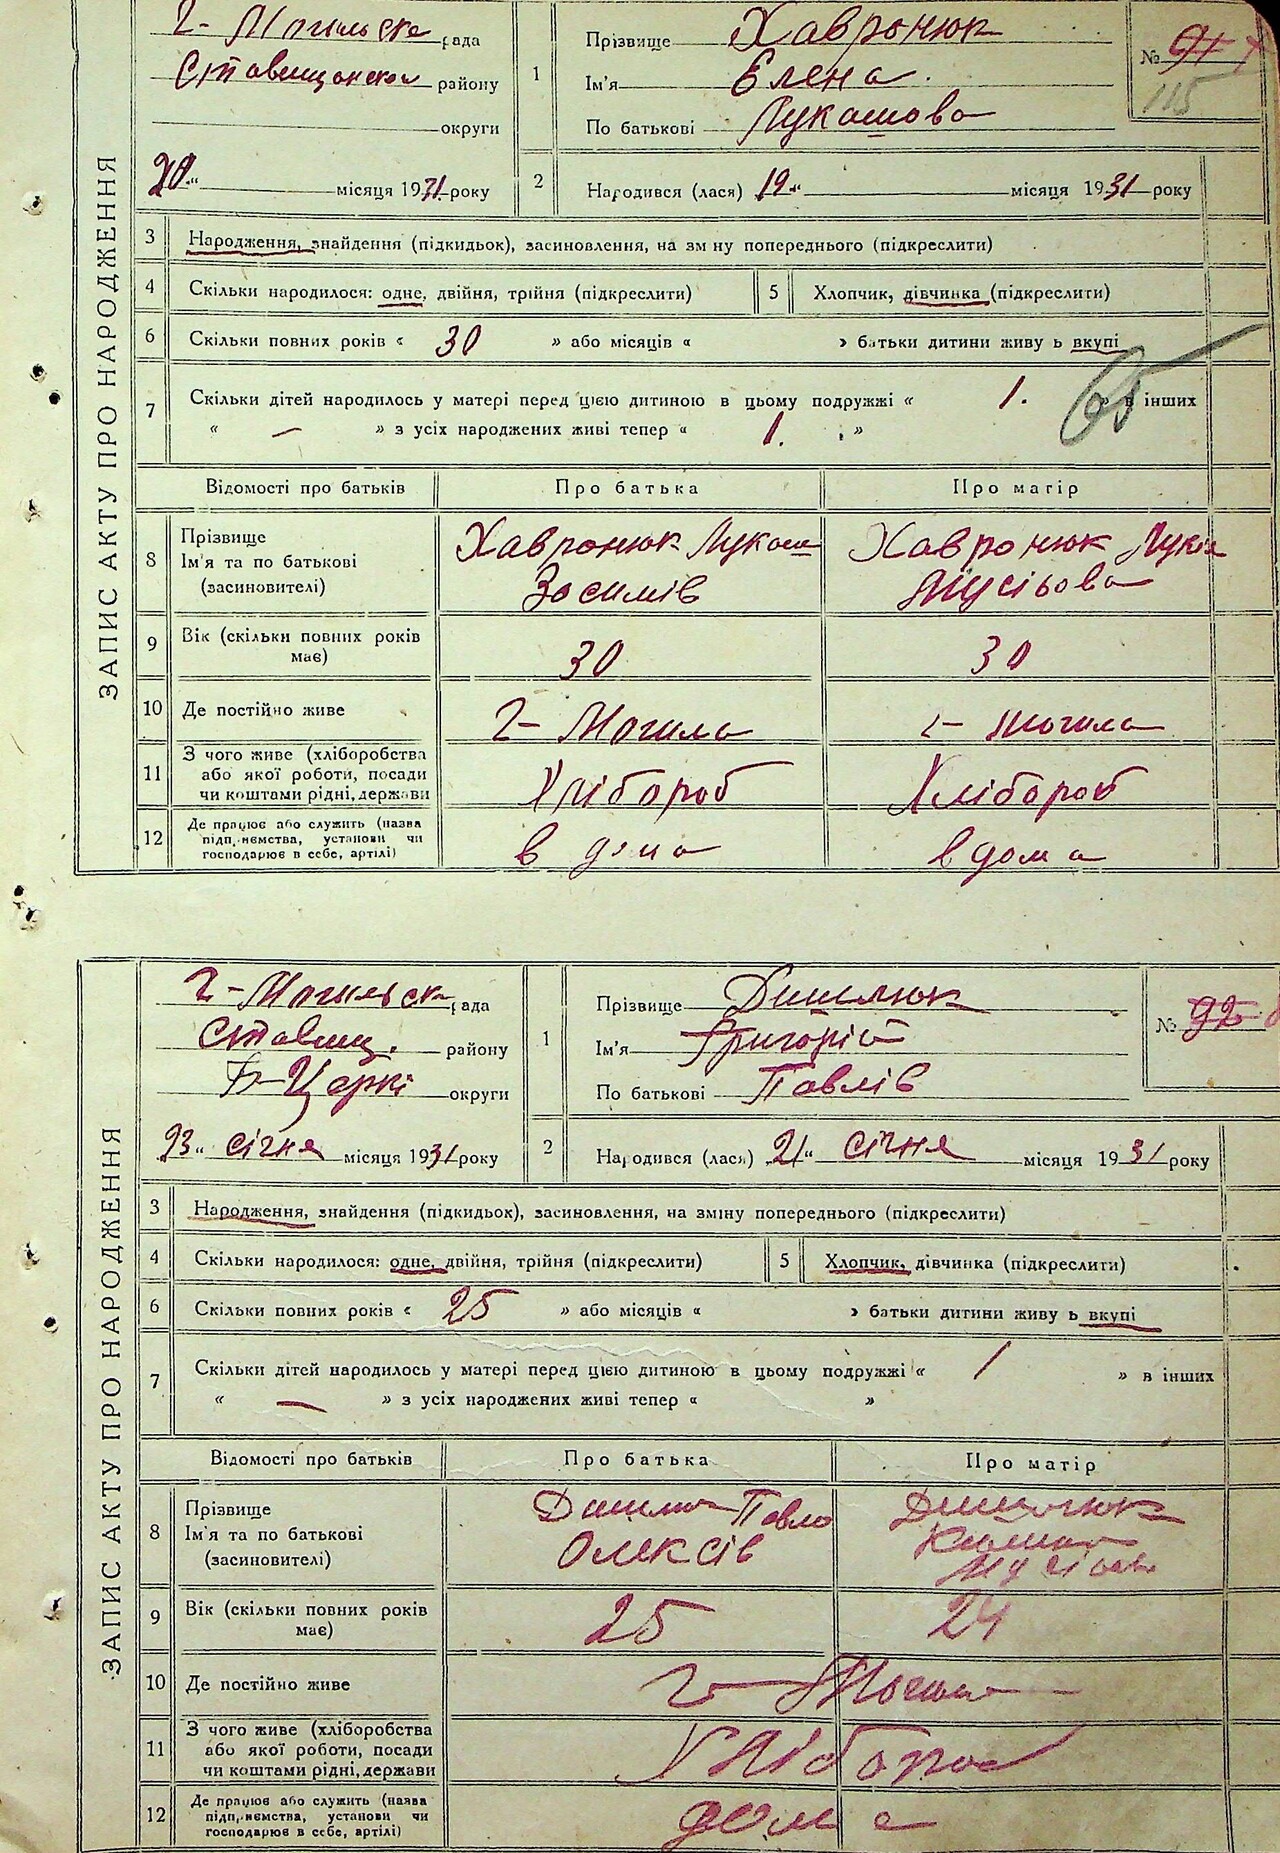 ЗАПИС АКТУ ПРО НАРОДЖЕННЯ
Г-Могильска рада
Ставищанског району
округи
20 " місяця 1931 року
1 Прізвище Хавронюк
Ім'я Елена
По батькові Лукашова
№ 91
115
2 Народився (лася) 19 " місяця 1931 року
3 Народження, знайдення (підкидьок), засиновлення, на зм ну попереднього (підкреслити)
4 Скільки народилося: одне, двійня, трійня (підкреслити) 5 Хлопчик, дівчинка (підкреслити)
6 Скільки повних років « 30 » або місяців « › батьки дитини живу ь вкупі
7 Скільки дітей народилось у матері перед цією дитиною в цьому подружжі « 1. » в інших
« — » з усіх народжених живі тепер « 1. »
65
Відомості про батьків Про батька Про матір
8 Прізвище Ім'я та по батькові (засиновителі) Хавронюк Лукаш Зосимів Хавронюк Лукія Мусієова
9 Вік (скільки повних років має) 30 30
10 Де постійно живе Г- Могила Г- Могила
11 З чого живе (хліборобства або якої роботи, посади чи коштами рідні, держави Хлібороб Хлібороб
12 Де працює або служить (назва підп,иємства, установи чи господарює в себе, артілі) в дома в дома
ЗАПИС АКТУ ПРО НАРОДЖЕННЯ
Г-Могильска рада
Ставищ. району
Б-Церкі округи
23 " січня місяця 1931 року
1 Прізвище
Ім'я Григорій
По батькові Павлів
№ 92
2 Народився (лася) 21 " січня місяця 1931 року
3 Народження, знайдення (підкидьок), засиновлення, на зміну попереднього (підкреслити)
4 Скільки народилося: одне, двійня, трійня (підкреслити) 5 Хлопчик, дівчинка (підкреслити)
6 Скільки повних років « 25 » або місяців « › батьки дитини живу ь вкупі
7 Скільки дітей народилось у матері перед цією дитиною в цьому подружжі « 1 » в інших
« — » з усіх народжених живі тепер « »
Відомості про батьків Про батька Про матір
8 Прізвище Ім'я та по батькові (засиновителі) Павло Олексів
9 Вік (скільки повних років має) 25 24
10 Де постійно живе Г- Могила
11 З чого живе (хліборобства або якої роботи, посади чи коштами рідні, держави Хлібороб
12 Де працює або служить (назва підп,иємства, установи чи господарює в себе, артілі) дома